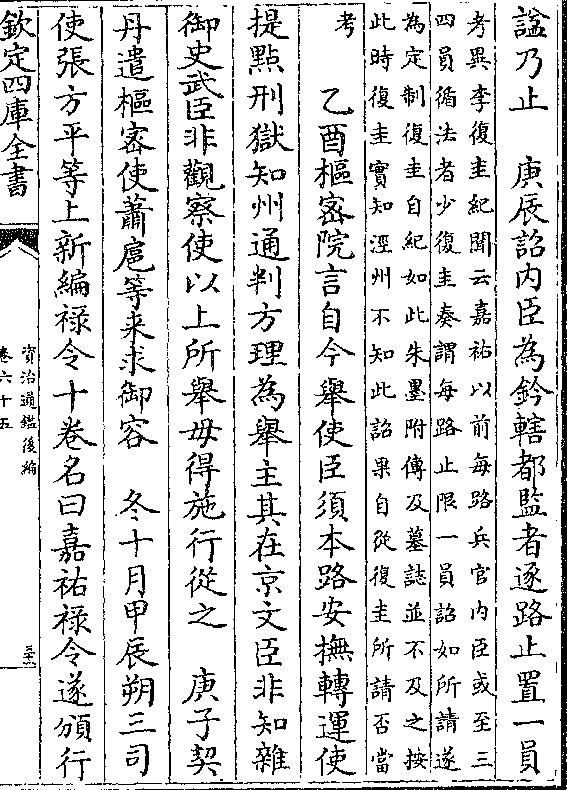 諡乃止　庚辰詔内臣為鈐轄都監者逐路止置一員
考異李復圭紀聞云嘉祐以前每路兵官内臣或至三
四員循法者少復圭奏謂每路止限一員詔如所請遂
為定制復圭自紀如此朱墨附傳及墓誌並不及之按
此時復圭實知涇州不知此詔果自從復圭所請否當
考　乙酉樞宻院言自今舉使臣須本路安撫轉運使
提點刑獄知州通判方理為舉主其在京文臣非知雜
御史武臣非觀察使以上所舉毋得施行從之　庚子契
丹遣樞宻使蕭扈等來求御容　冬十月甲辰朔三司
使張方平等上新編禄令十卷名曰嘉祐禄令遂頒行
欽定四庫全書
資治通鑑後編
卷六十五